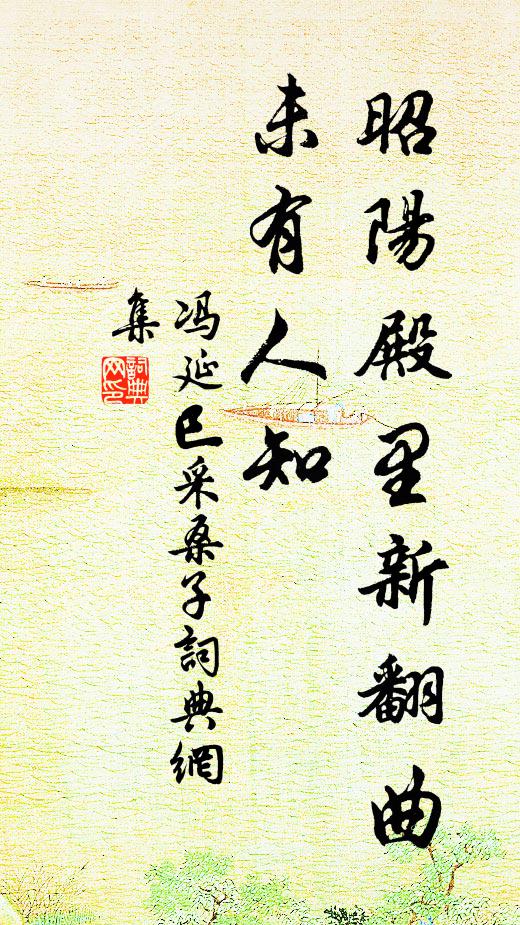 昭陽殿里新翻曲
未有人知
冯延巳采桑子詞典網
集
詞典
网印